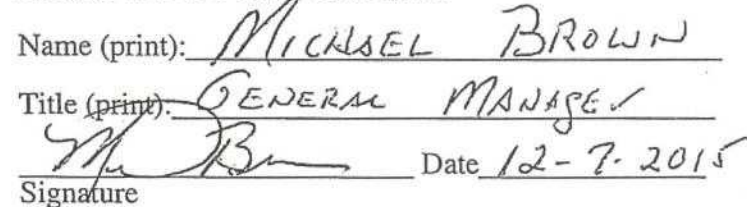 Name (print): MICHAEL BROWN
Title (print): GENERAL MANAGER
Date 12-7-2015
Signature